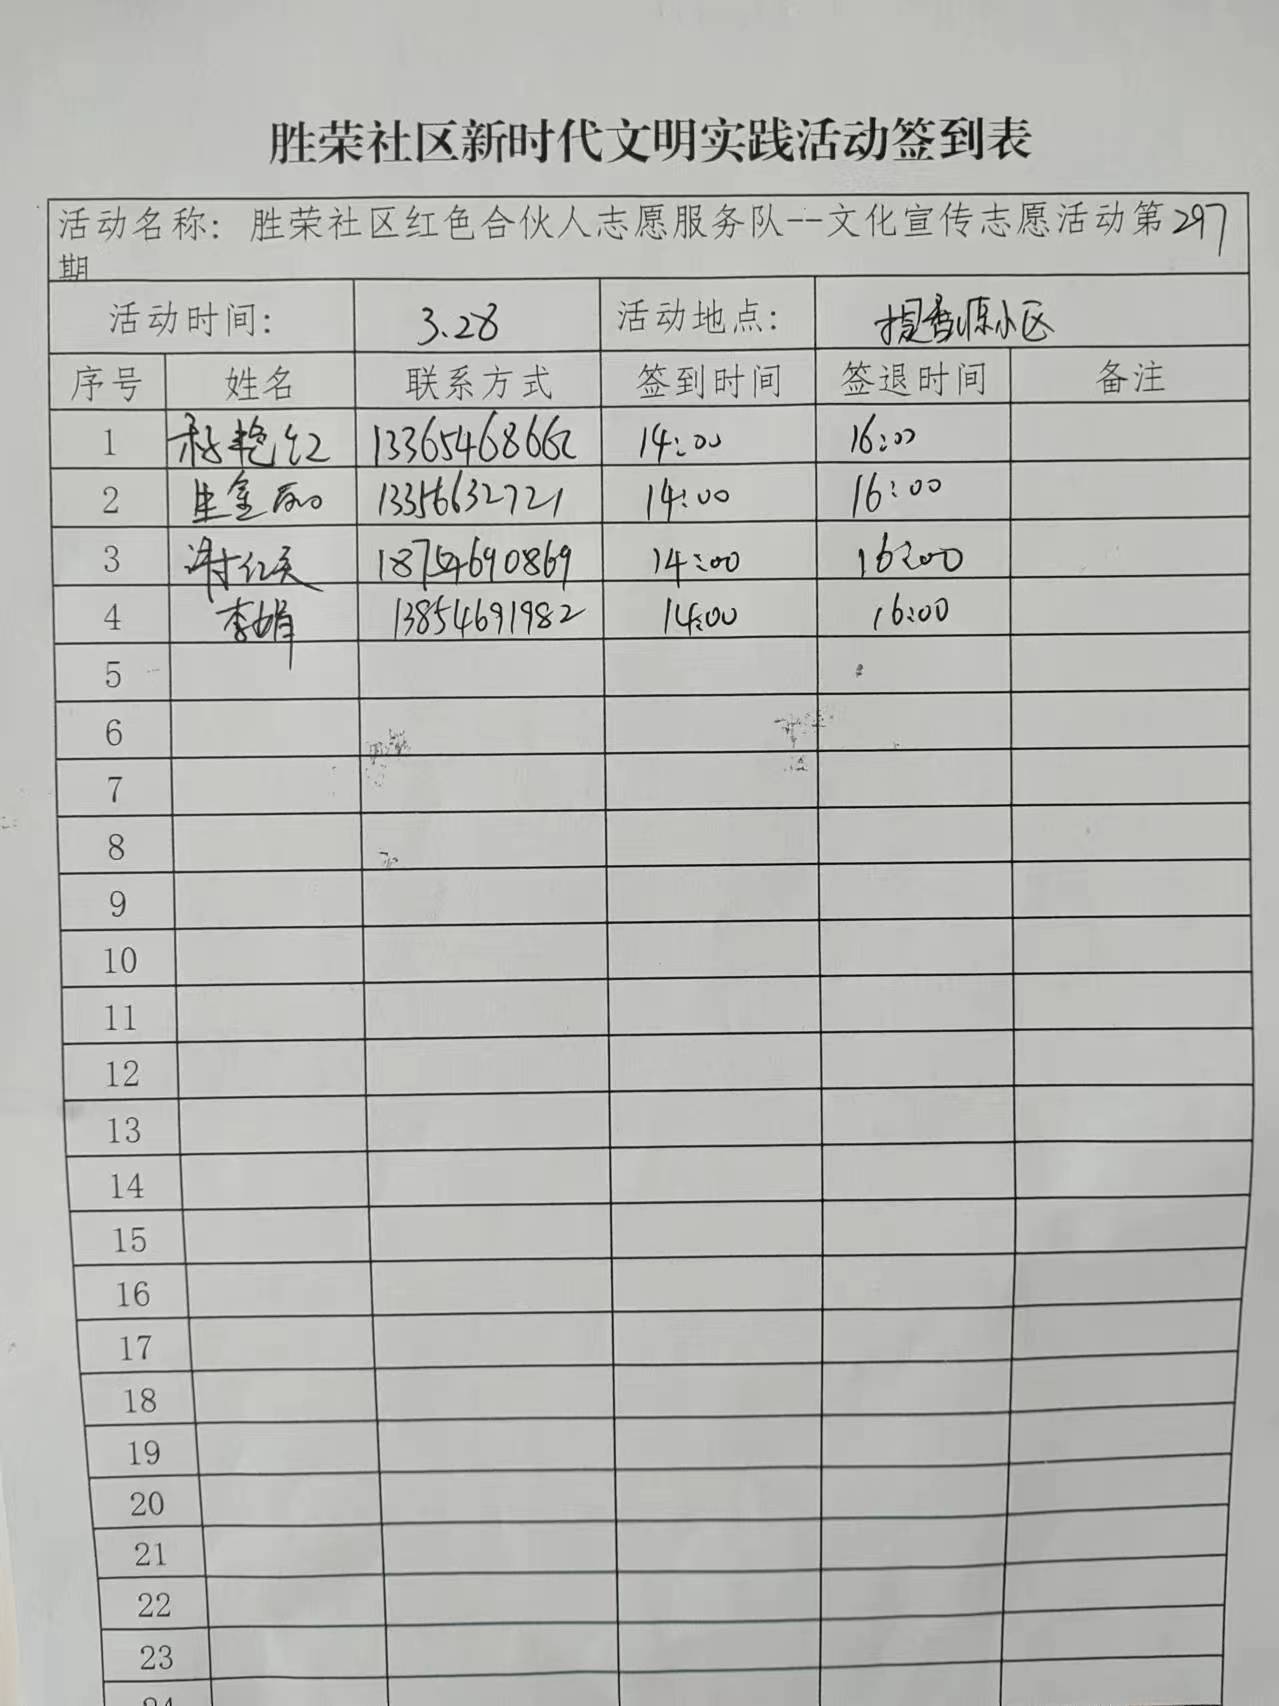 胜荣社区新时代文明实践活动签到表
活动名称：胜荣社区红色合伙人志愿服务队--文化宣传志愿活动第297
期
活动时间： 3.28 活动地点： 提香源小区
序号 姓名 联系方式 签到时间 签退时间 备注
1 艳红 13365468662 14:00 16:00
2 13356632721 14:00 16:00
3 谢红英 18754690869 14:00 16:00
4 李娟 13854691982 14:00 16:00
5
6
7
8
9
10
11
12
13
14
15
16
17
18
19
20
21
22
23
24